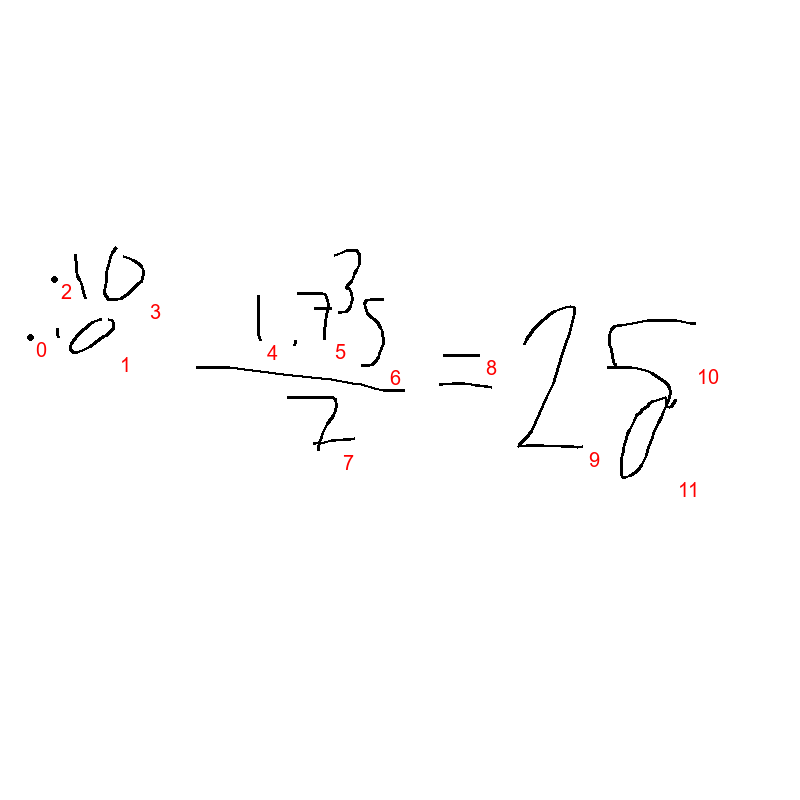 .10
.10
3
1.75
7
= 25
0 1 2 3 4 5 6 7 8 9 10 11